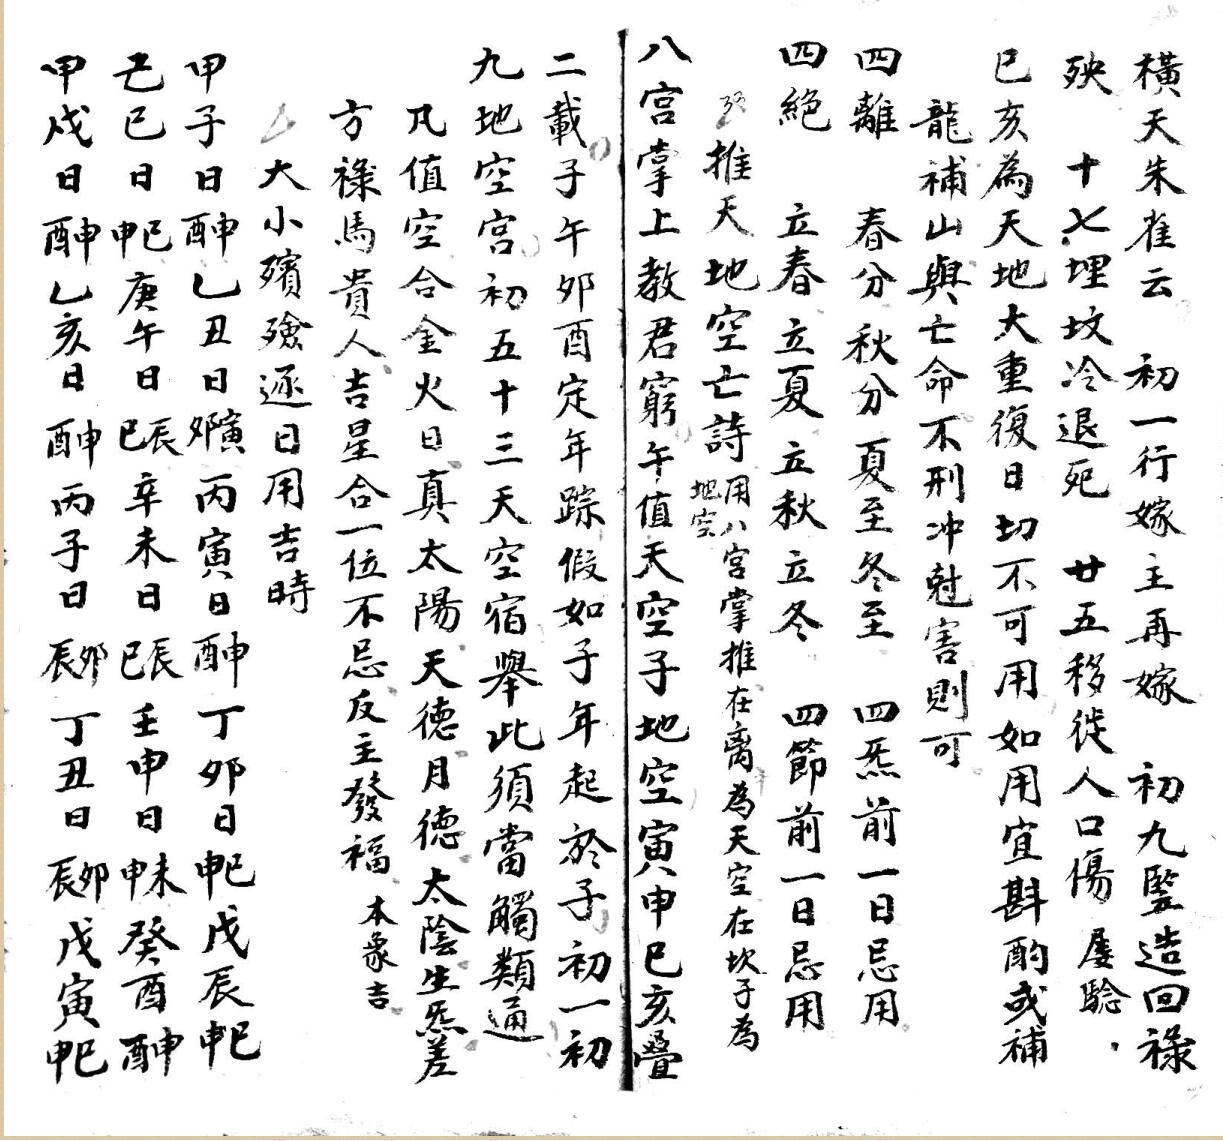 橫天朱雀云　初一行嫁主再嫁　初九竪造回祿
殃　十七埋坟冷退死　廿五移徙人口傷　屡騐
巳亥為天地大重復日切不可用如用宜斟酌或補
龍補山與亡命不刑冲尅害則可
四離　春分秋分　夏至冬至　四炁前一日忌用
四絕　立春立夏　立秋立冬　四節前一日忌用
推天地空亡詩 用八宮掌推在离為天空在坎子為
地空
八宮掌上教君窮午值天空子地空寅申巳亥疊
二載子午夘酉定年踪假如子年起於子初一初
九地空宮初五十三天空宿舉此須當觸類通
凡值空合金火日真太陽天德月德太陰生炁差
方祿馬貴人吉星合一位不忌反主發福 本象吉
大小殯殮逐日用吉時
甲子日酉申乙丑日夘寅丙寅日酉申丁夘日申巳戊辰申巳
己巳日申巳庚午日巳辰辛未日巳辰壬申日申未癸酉酉申
甲戌日酉申乙亥日酉申丙子日辰夘丁丑日辰夘戊寅申巳